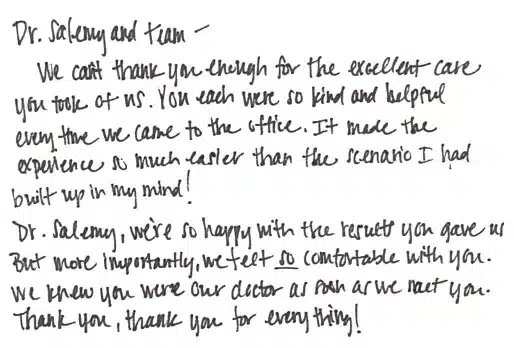 Dr. Salemy and team –
We can't thank you enough for the excellent care
you took of us. You each were so kind and helpful
every time we came to the office. It made the
experience so much easier than the scenario I had
built up in my mind!
Dr. Salemy, we're so happy with the results you gave us
But more importantly, we felt so comfortable with you.
We knew you were our doctor as soon as we met you.
Thank you, thank you for everything!